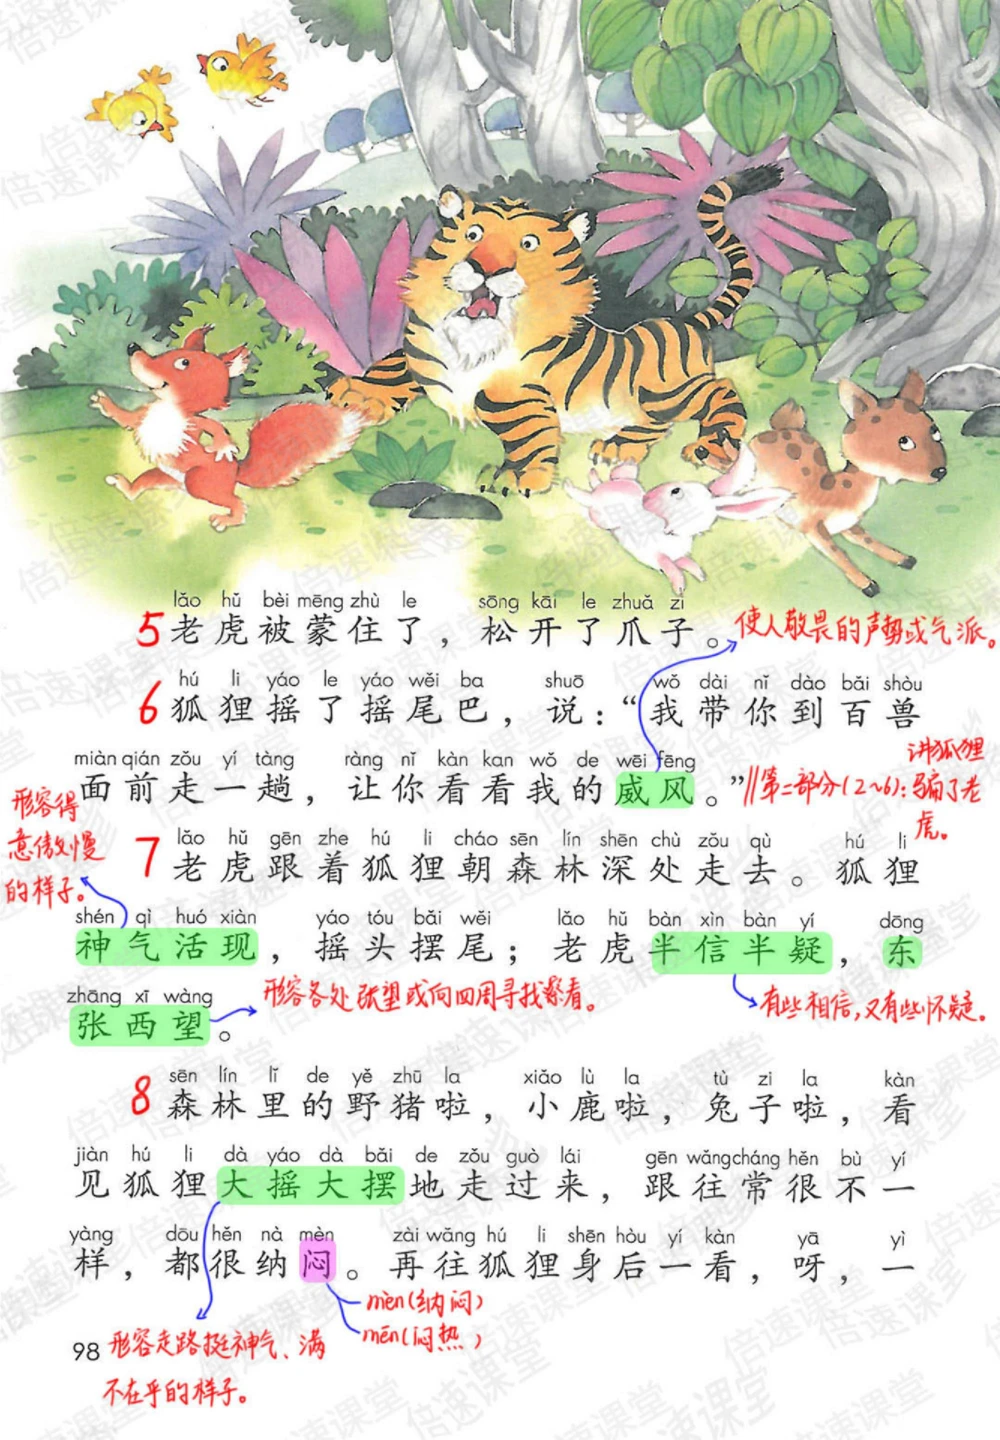 lǎo hǔ bèi mēng zhù le sōng kāi le zhuǎ zi
5 老虎被蒙住了，松开了爪子。
使人敬畏的声势或气派。
hú li yáo le yáo wěi ba shuō wǒ dài nǐ dào bǎi shòu
6 狐狸摇了摇尾巴，说：“我带你到百兽
miàn qián zǒu yí tàng ràng nǐ kàn kan wǒ de wēi fēng
面前走一趟，让你看看我的威风。”
//第二部分(2~6)：讲狐狸骗了老虎。
形容得意傲慢的样子。
lǎo hǔ gēn zhe hú li cháo sēn lín shēn chù zǒu qù hú li
7 老虎跟着狐狸朝森林深处走去。狐狸
shén qì huó xiàn yáo tóu bǎi wěi lǎo hǔ bàn xìn bàn yí dōng
神气活现，摇头摆尾；老虎半信半疑，东
zhāng xī wàng
张西望。
形容各处张望或向四周寻找察看。
有些相信,又有些怀疑。
sēn lín lǐ de yě zhū la xiǎo lù la tù zi la kàn
8 森林里的野猪啦，小鹿啦，兔子啦，看
jiàn hú li dà yáo dà bǎi de zǒu guò lái gēn wǎng cháng hěn bù yí
见狐狸大摇大摆地走过来，跟往常很不一
yàng dōu hěn nà mèn zài wǎng hú li shēn hòu yí kàn yā yì
样，都很纳闷。再往狐狸身后一看，呀，一
mèn(纳闷)
mēn(闷热)
98
形容走路挺神气、满
不在乎的样子。
倍速课堂